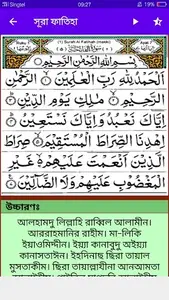 Singtel
09:27
সূরা ফাতিহা
(1) Surah Al Fatihah (makki)
بِسْمِ اللهِ الرَّحْمٰنِ الرَّحِيْمِ
اَلْحَمْدُ لِلّٰهِ رَبِّ الْعٰلَمِيْنَ الرَّحْمٰنِ
الرَّحِيْمِ مٰلِكِ يَوْمِ الدِّيْنِ
اِيَّاكَ نَعْبُدُ وَاِيَّاكَ نَسْتَعِيْنُ
اِهْدِنَا الصِّرَاطَ الْمُسْتَقِيْمَ صِرَاطَ
الَّذِيْنَ اَنْعَمْتَ عَلَيْهِمْ غَيْرِ
الْمَغْضُوْبِ عَلَيْهِمْ وَلَا الضَّآلِّيْنَ
উচ্চারণঃ
আলহামদু লিল্লাহি রাব্বিল আলামীন।
আররাহমানির রাহীম। মা-লিকি
ইয়াওমিদ্দীন। ইয়্যা কানাবুদু অইয়্যা
কানাসতাঈন। ইহদিনাছ ছিরা তায়াল
মুসতাকীম। ছিরা তায়াল্লাযীনা আনআমতা